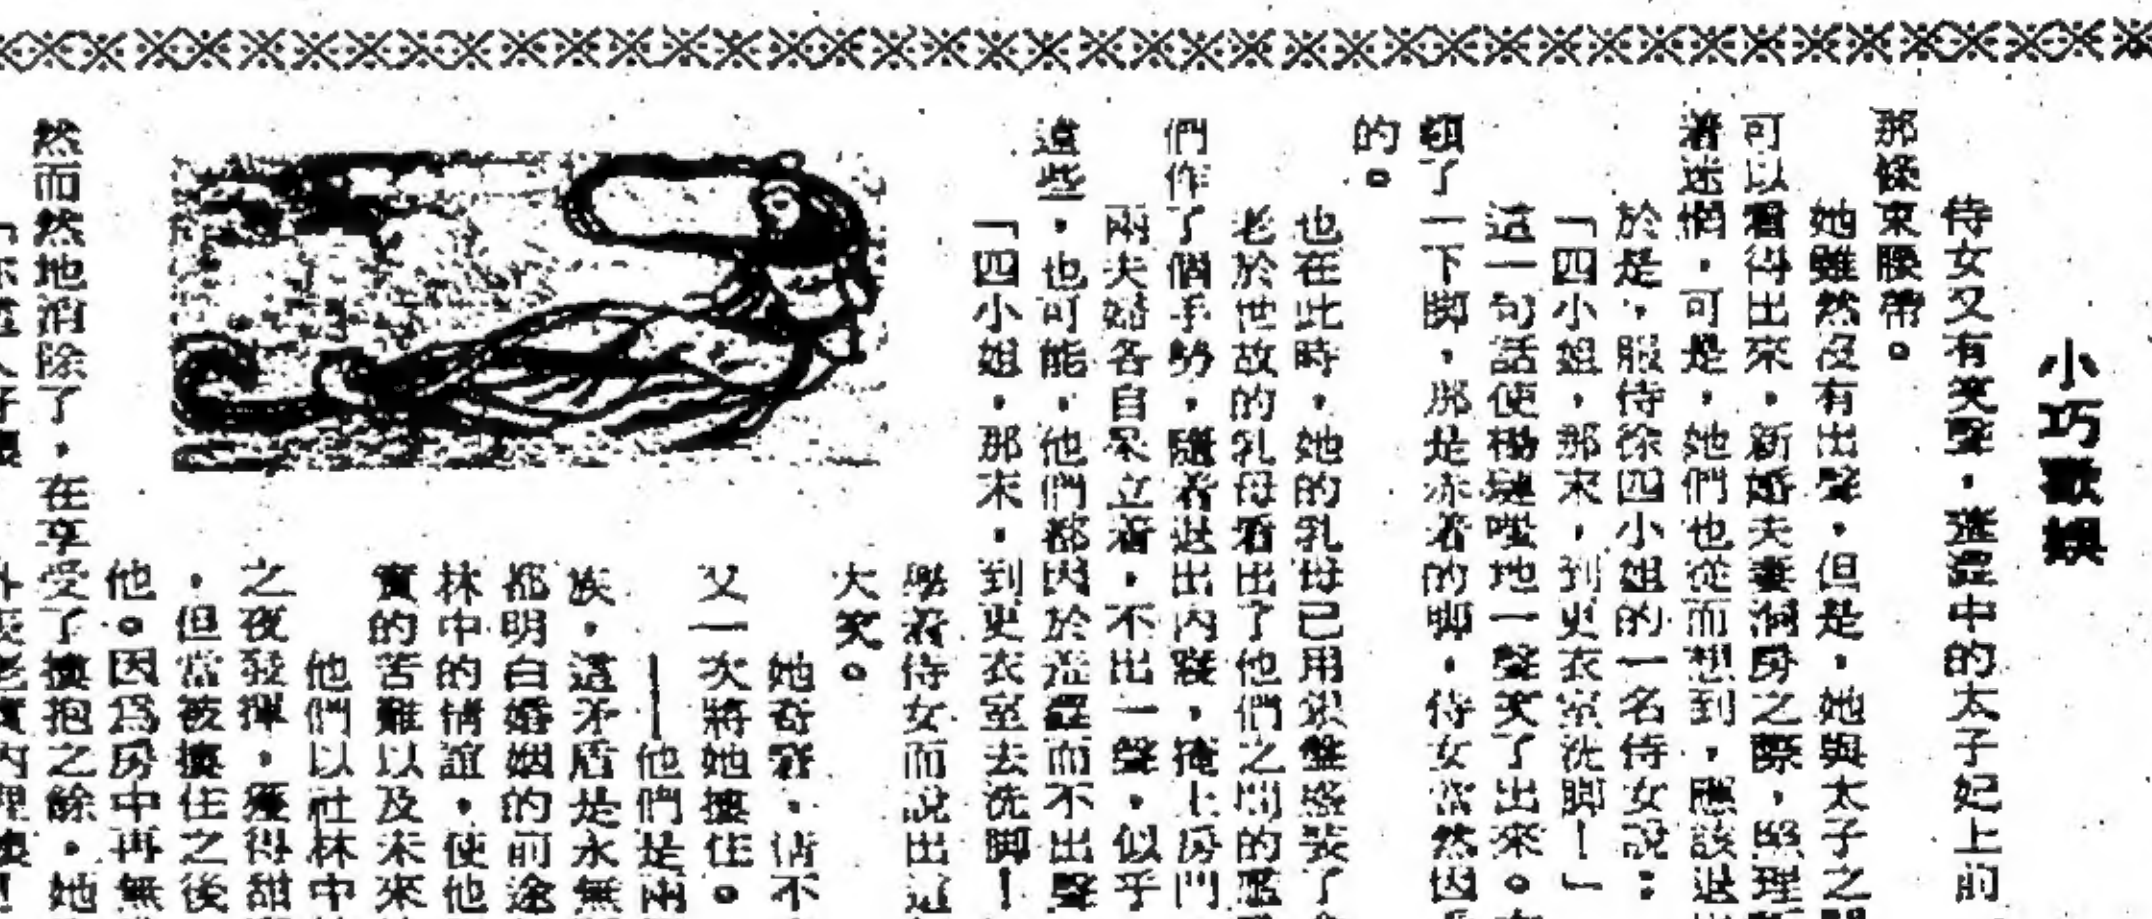 小巧歡娛
侍女又有笑聲，進靈中的太子妃上前
那條束腰帶。
她雖然沒有出聲，但是，她與太子之間
可以看得出來，新婚夫妻洞房之際，照理
着迷惘，可是，她們也從而想到，應該退出
於是，服侍徐四小姐的一名侍女說：
「四小姐，那末，到更衣室洗脚！」
這一句話使楊璉哩地一聲笑了出來。
頓了一下脚，那是赤着的脚，侍女當然因
的。
也在此時，她的乳母已用銀盤盛裝了
老於世故的乳母看出了他們之間的尷
們作了個手勢，隨着退出內寢，掩上房門
兩夫婦各自呆立着，不出一聲，似乎
這些，也可能，他們都因於尷尬而不出聲
「四小姐，那末，到更衣室去洗脚！
學着侍女而說出這
大笑。
她奇窘，倩不
又一次將她摟住。
——他們是兩
族，這矛盾是永無
都明白婚姻的前途
林中的情誼，使他
實的苦難以及未來
他們以社林中
之夜發揮，獲得甜
，但當被摟住之後
他。因爲房中再無
然而然地消除了，在享受了摟抱之餘，她